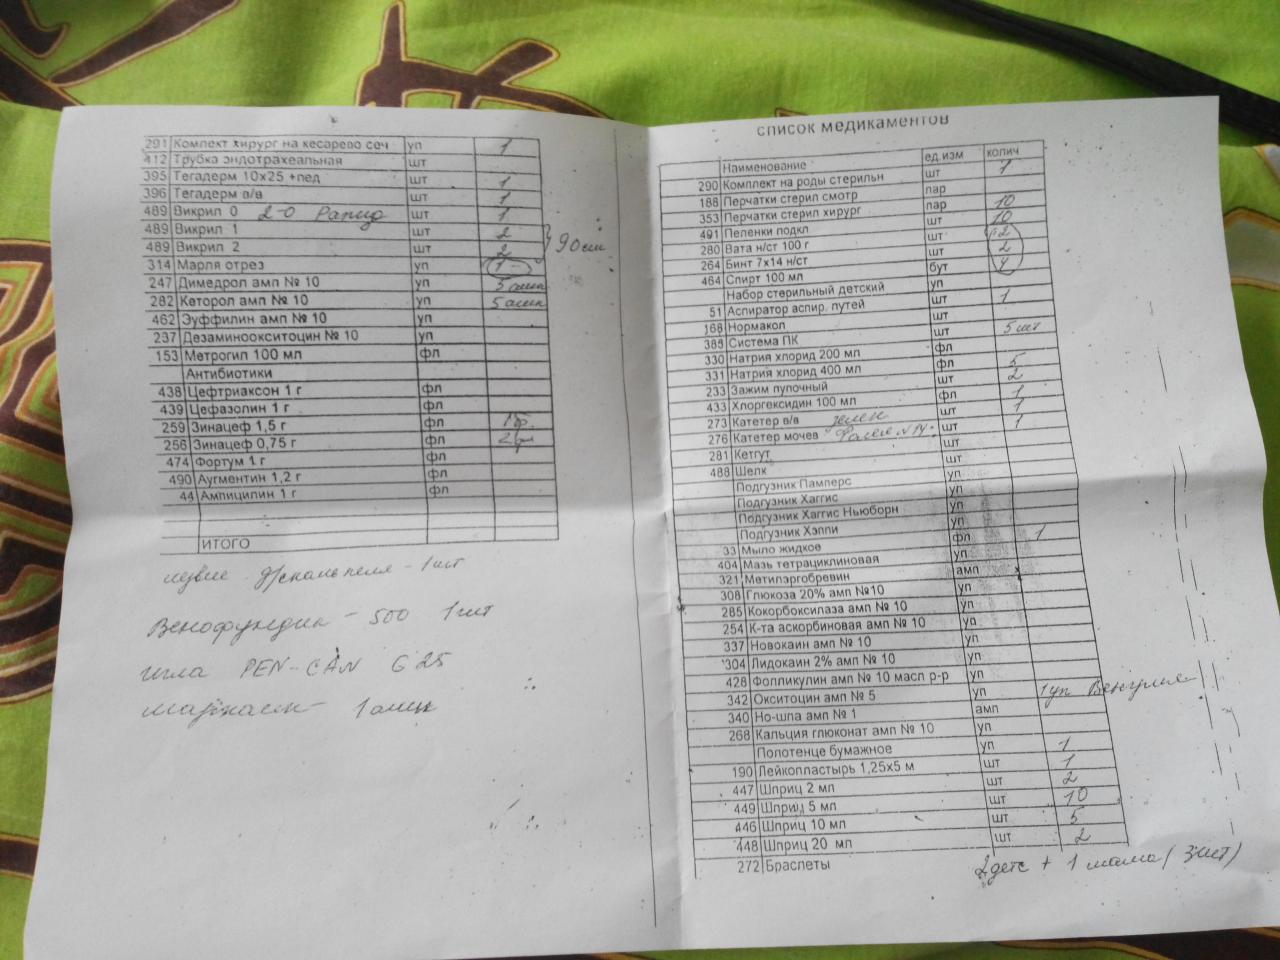 291 Комплект хирург на кесарево сеч уп 1
412 Трубка эндотрахеальная шт
395 Тегадерм 10x25 +пед шт 1
396 Тегадерм в/в шт 1
489 Викрил 0 2-0 Рапид шт 1
489 Викрил 1 шт 2 90 см
489 Викрил 2 шт 2
314 Марля отрез уп 1
247 Димедрол амп № 10 уп 5 амп
282 Кеторол амп № 10 уп 5 амп
462 Эуффилин амп № 10 уп
237 Дезаминоокситоцин № 10 уп
153 Метрогил 100 мл фл
Антибиотики
438 Цефтриаксон 1 г фл
439 Цефазолин 1 г фл
259 Зинацеф 1,5 г фл
256 Зинацеф 0,75 г фл
474 Фортум 1 г фл
490 Аугментин 1,2 г фл
44 Ампицилин 1 г фл
ИТОГО
лезвие д/скальпеля - 1 шт
Венофундин - 500 1 шт
игла PEN-CAN G 25
маркаин - 1 амп
список медикаментов
Наименование ед.изм колич
290 Комплект на роды стерильн шт 1
188 Перчатки стерил смотр пар
353 Перчатки стерил хирург пар 10
491 Пеленки подкл шт 10
280 Вата н/ст 100 г шт 2
264 Бинт 7x14 н/ст шт 2
464 Спирт 100 мл бут
Набор стерильный детский уп
51 Аспиратор аспир. путей шт 1
168 Нормакол шт
385 Система ПК шт 5 шт
330 Натрия хлорид 200 мл фл
331 Натрия хлорид 400 мл фл 5
233 Зажим пупочный шт 2
433 Хлоргексидин 100 мл фл 1
273 Катетер в/в зелен шт 1
276 Катетер мочев Фолея N14 шт 1
281 Кетгут шт
488 Шелк шт
Подгузник Памперс уп
Подгузник Хаггис уп
Подгузник Хаггис Ньюборн уп
Подгузник Хэппи уп
33 Мыло жидкое фл 1
404 Мазь тетрациклиновая уп
321 Метилэргобревин амп
308 Глюкоза 20% амп №10 уп
285 Кокорбоксилаза амп № 10 уп
254 К-та аскорбиновая амп № 10 уп
337 Новокаин амп № 10 уп
304 Лидокаин 2% амп № 10 уп
428 Фолликулин амп № 10 масл р-р уп
342 Окситоцин амп № 5 уп 1 уп Венгрия
340 Но-шпа амп № 1 амп
268 Кальция глюконат амп № 10 уп
Полотенце бумажное уп 1
190 Лейкопластырь 1,25x5 м шт 1
447 Шприц 2 мл шт 2
449 Шприц 5 мл шт 10
446 Шприц 10 мл шт 5
448 Шприц 20 мл шт 2
272 Браслеты 2 детс + 1 мама (3 шт)